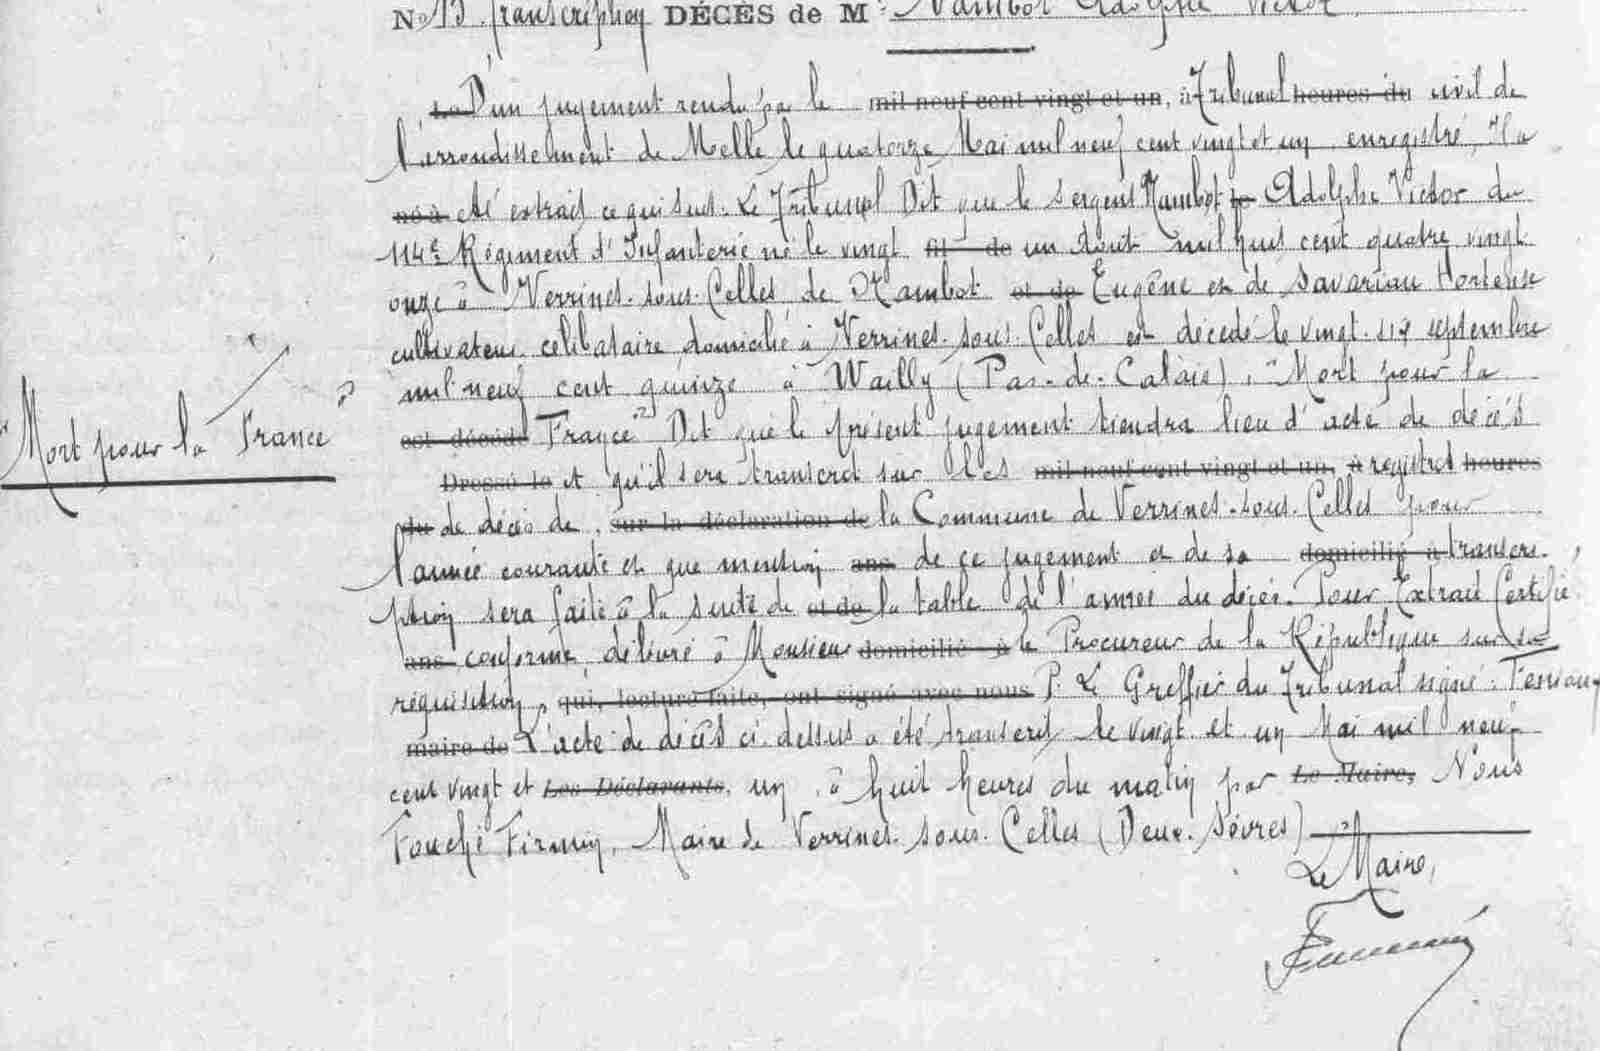 No 13 Transcription DÉCÈS de M. Nambot Adolphe Victor
Le D'un jugement rendu par le mil neuf cent vingt et un, à Tribunal heures du civil de
l'arrondissement de Melle le quatorze Mai mil neuf cent vingt et un enregistré, Il a
né à été extrait ce qui suit. Le Tribunal Dit que le sergent Nambot Adolphe Victor du
114e Régiment d'Infanterie né le vingt fil de un Août mil huit cent quatre vingt
onze à Verrines-sous-Celles de Nambot et de Eugène et de Savariau Hortense
cultivateur célibataire domicilié à Verrines-sous-Celles est décédé le vingt-six septembre
mil neuf cent quinze à Wailly (Pas-de-Calais), "Mort pour la
est décédé France" Dit que le présent jugement tiendra lieu d'acte de décès
"Mort pour la France"
Dressé le et qu'il sera transcrit sur les mil neuf cent vingt et un, à registres heures
du de décès de, sur la déclaration de la Commune de Verrines-sous-Celles pour
l'année courante et que mention ans de ce jugement et de sa domicilié à transcri-
ption sera faite à la suite de et de la table de l'année du décès. Pour Extrait Certifié
ans conforme, délivré à Monsieur domicilié à le Procureur de la République sur sa
réquisition, qui, lecture faite, ont signé avec nous P. Le Greffier du Tribunal signé:
maire de L'acte de décès ci-dessus a été transcrit le vingt et un Mai mil neuf
cent vingt et Les Déclarants, un, à huit heures du matin par Le Maire, Nous
Fouché Firmin, Maire de Verrines-sous-Celles (Deux-Sèvres)
Le Maire,